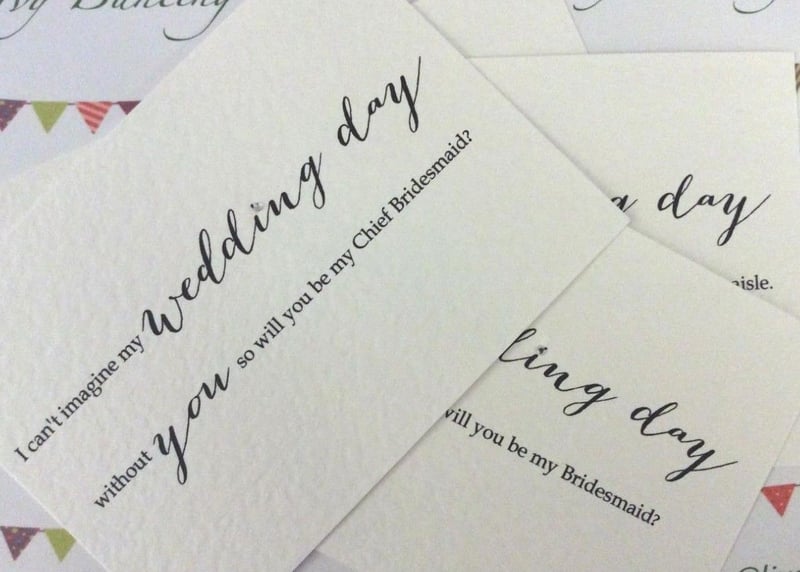 Bunting
I can't imagine my wedding day
without you so will you be my Chief Bridesmaid?
day
aisle.
ling day
will you be my Bridesmaid?